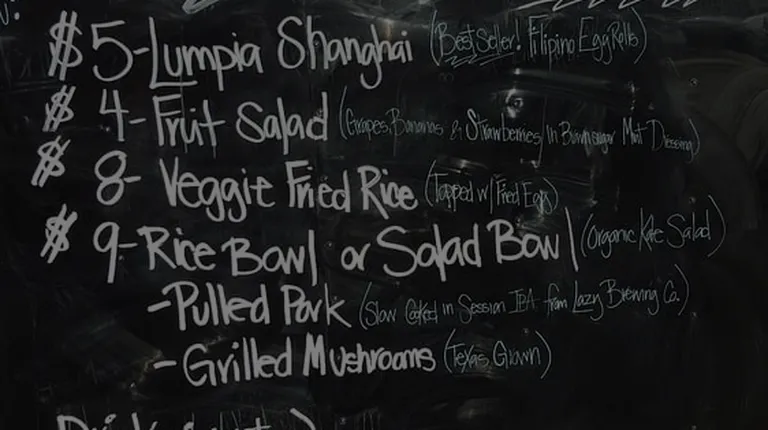 $5-Lumpia Shanghai (Best Seller! Filipino Egg Rolls)
$4-Fruit Salad (Grapes, Bananas & Strawberries in Brown sugar Mint Dressing)
$8-Veggie Fried Rice (Topped w/ Fried Egg)
$9-Rice Bowl or Salad Bowl (Organic Kale Salad)
-Pulled Pork (Slow Cooked in Session IPA from Lazy Brewing Co.)
-Grilled Mushrooms (Texas Grown)